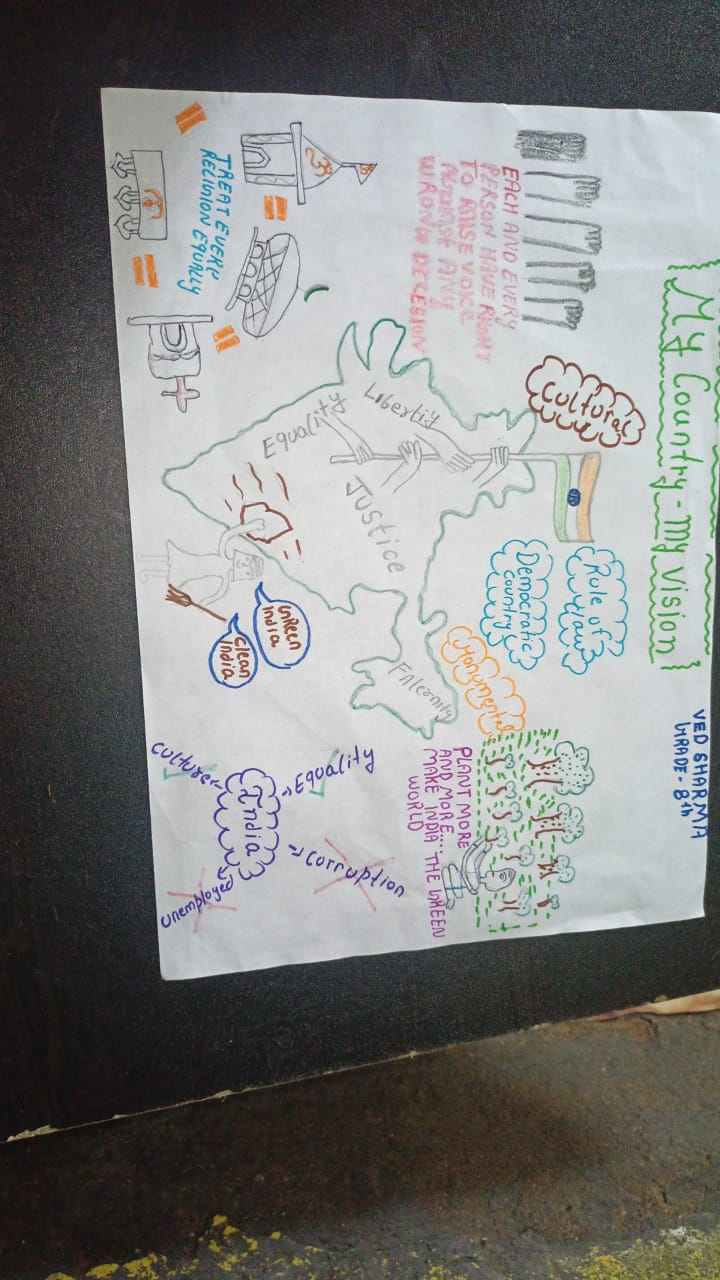 My Country - My vision
VED SHARMA
GRADE - 8th
EACH AND EVERY
PERSON HAVE RIGHT
TO RAISE VOICE
AGAINST ANY
WRONG DECESION
Cultural
Rule of
Law
Democratic
country
Monumental
PLANT MORE
AND MORE.... THE GREEN
MAKE INDIA
WORLD
TREAT EVERY
RELIGION EQUALLY
ॐ
Liberty
Equality
JUSTICE
FAternity
GREEN
India
Clean
India
India
Equality
Corruption
Culture
unemployed